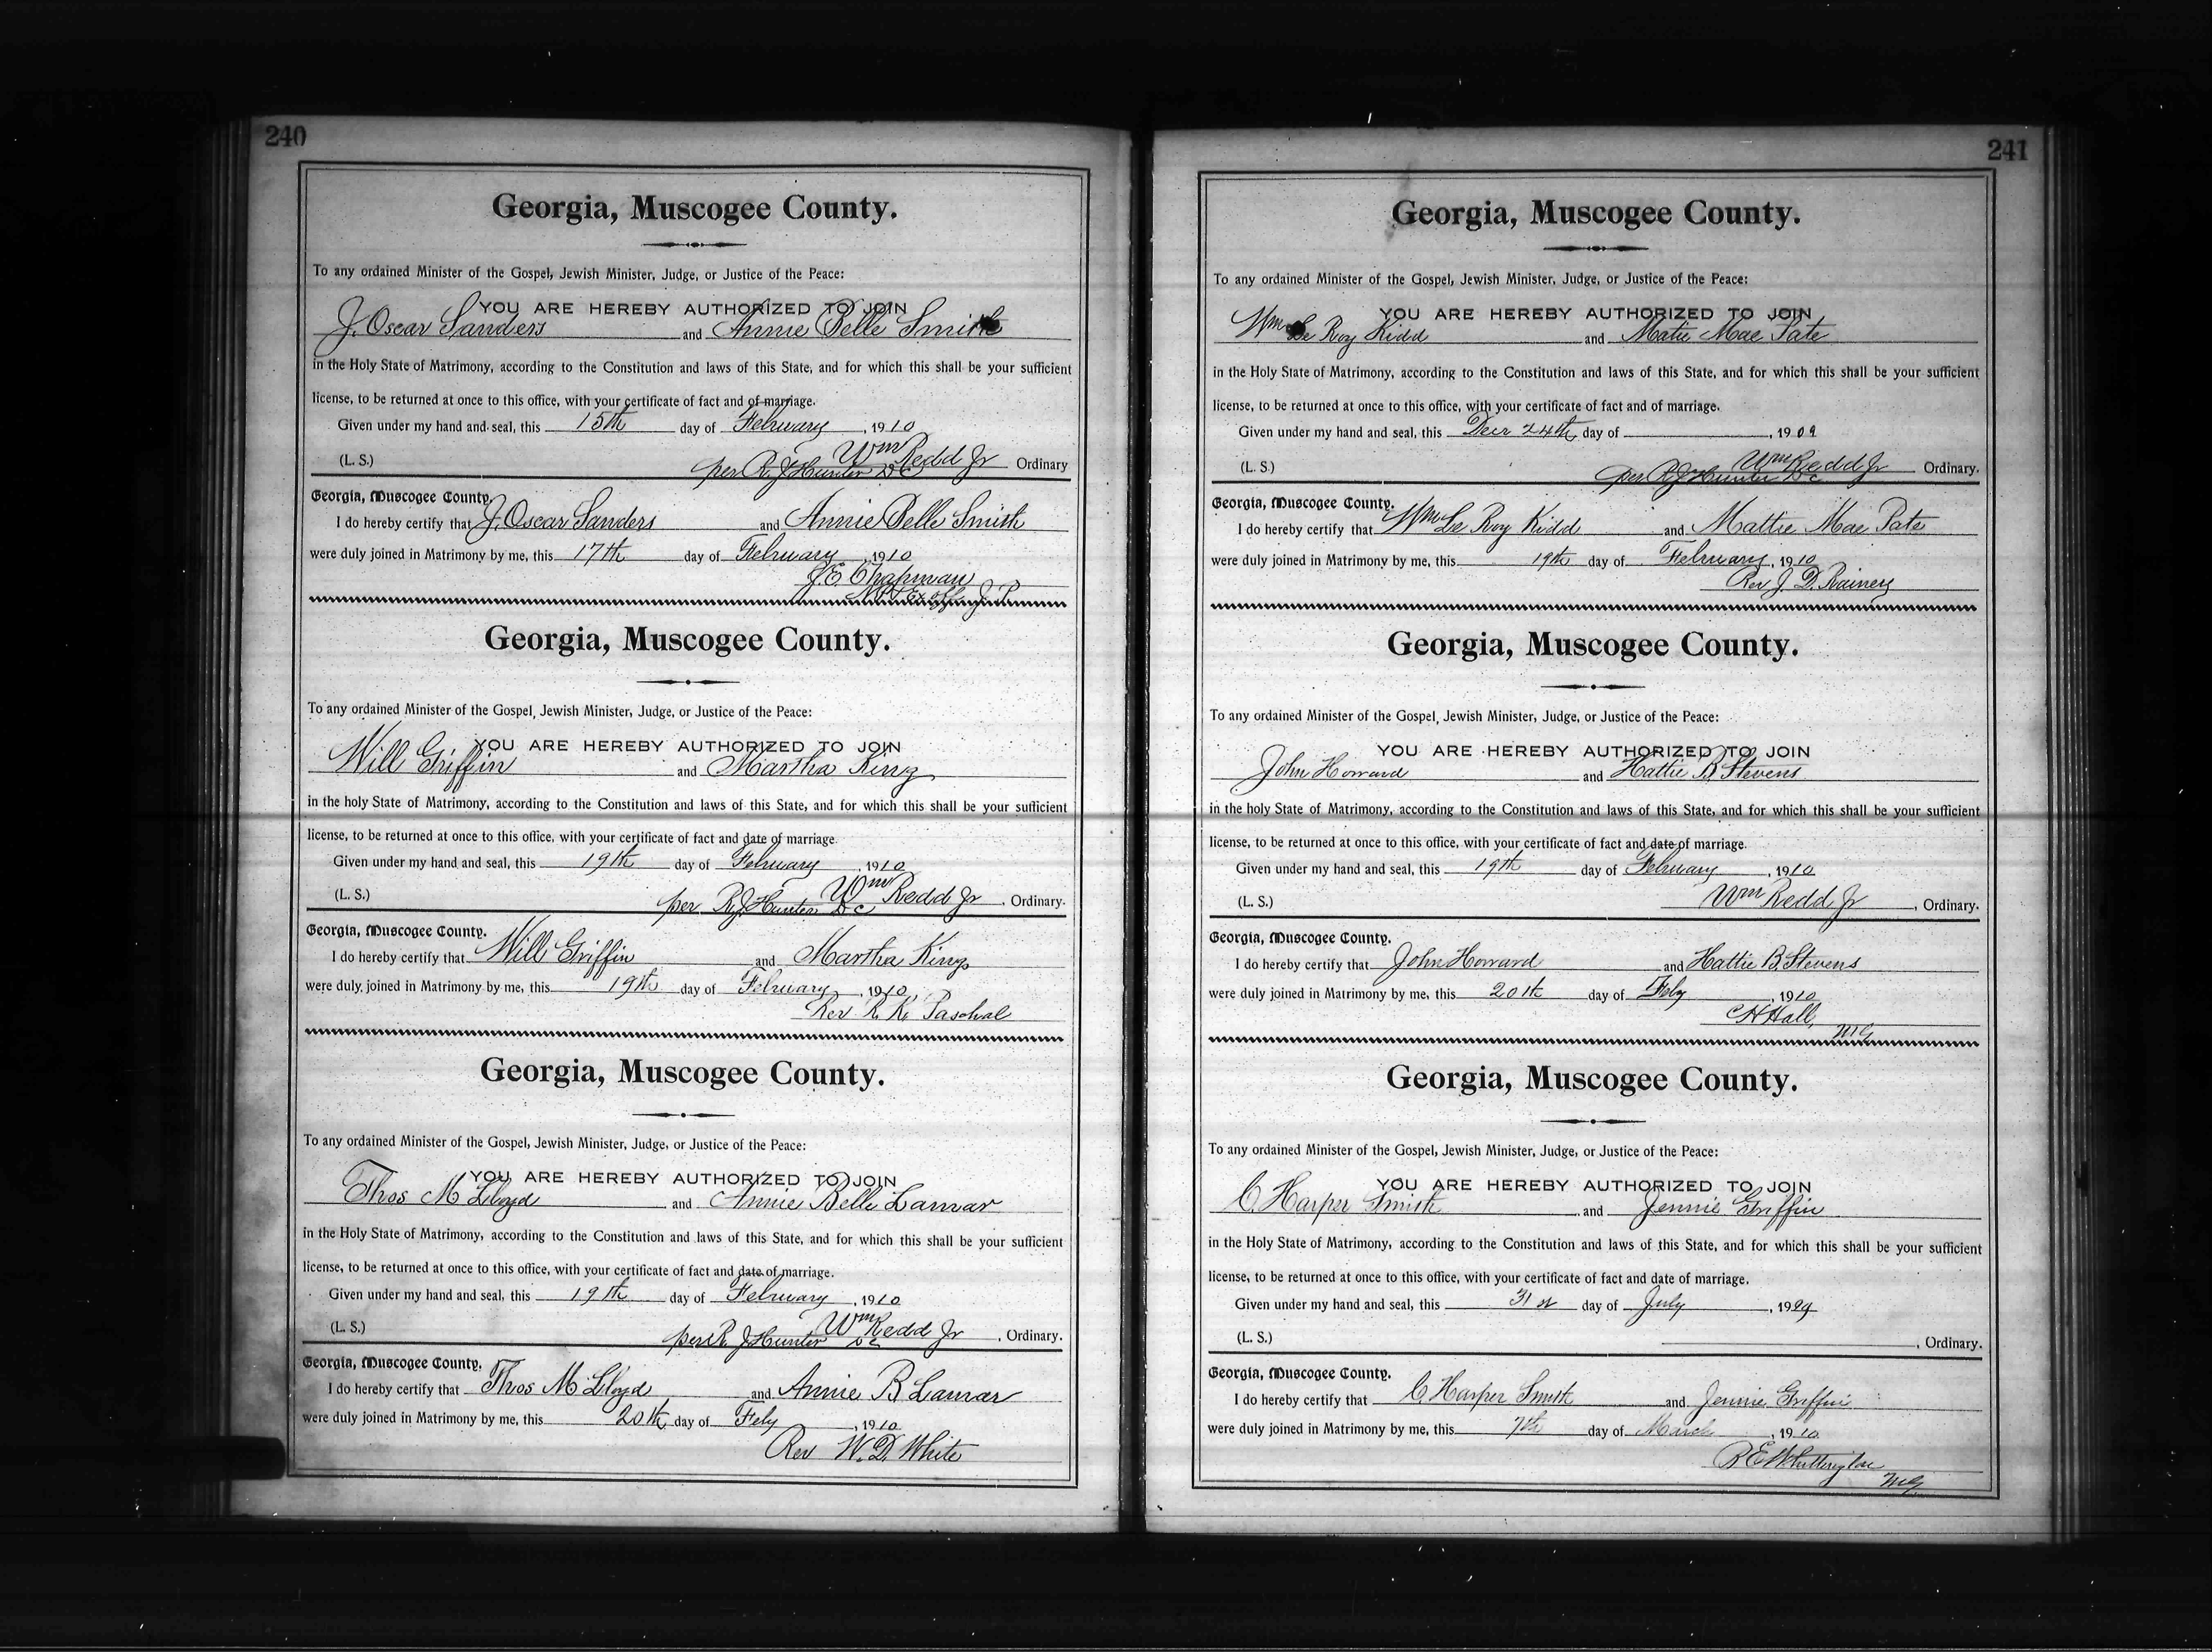 240
Georgia, Muscogee County.
To any ordained Minister of the Gospel, Jewish Minister, Judge, or Justice of the Peace:
YOU ARE HEREBY AUTHORIZED TO JOIN
J. Oscar Sanders and Annie Belle Smith
in the Holy State of Matrimony, according to the Constitution and laws of this State, and for which this shall be your sufficient
license, to be returned at once to this office, with your certificate of fact and of marriage.
Given under my hand and seal, this 15th day of February, 1910
(L. S.) Wm Redd Jr Ordinary
per R. J. Hunter D C
Georgia, Muscogee County.
I do hereby certify that J. Oscar Sanders and Annie Belle Smith
were duly joined in Matrimony by me, this 17th day of February, 1910
J. E. Chapman
N P & Ex off J. P.
Georgia, Muscogee County.
To any ordained Minister of the Gospel, Jewish Minister, Judge, or Justice of the Peace:
YOU ARE HEREBY AUTHORIZED TO JOIN
Will Griffin and Martha King
in the holy State of Matrimony, according to the Constitution and laws of this State, and for which this shall be your sufficient
license, to be returned at once to this office, with your certificate of fact and date of marriage.
Given under my hand and seal, this 19th day of February, 1910
(L. S.) Wm Redd Jr, Ordinary.
per R. J. Hunter D C
Georgia, Muscogee County.
I do hereby certify that Will Griffin and Martha King
were duly joined in Matrimony by me, this 19th day of February, 1910
Rev R. K. Paschal
Georgia, Muscogee County.
To any ordained Minister of the Gospel, Jewish Minister, Judge, or Justice of the Peace:
YOU ARE HEREBY AUTHORIZED TO JOIN
Thos M Lloyd and Annie Belle Lamar
in the Holy State of Matrimony, according to the Constitution and laws of this State, and for which this shall be your sufficient
license, to be returned at once to this office, with your certificate of fact and date of marriage.
Given under my hand and seal, this 19th day of February, 1910
(L. S.) Wm Redd Jr, Ordinary.
per R. J. Hunter D C
Georgia, Muscogee County.
I do hereby certify that Thos M Lloyd and Annie B Lamar
were duly joined in Matrimony by me, this 20th day of Feby, 1910
Rev W. D. White
241
Georgia, Muscogee County.
To any ordained Minister of the Gospel, Jewish Minister, Judge, or Justice of the Peace:
YOU ARE HEREBY AUTHORIZED TO JOIN
Wm Le Roy Kidd and Matie Mae Pate
in the Holy State of Matrimony, according to the Constitution and laws of this State, and for which this shall be your sufficient
license, to be returned at once to this office, with your certificate of fact and of marriage.
Given under my hand and seal, this Decr 24th day of , 1909
(L. S.) Wm Redd Jr Ordinary.
per R. J. Hunter D C
Georgia, Muscogee County.
I do hereby certify that Wm Le Roy Kidd and Mattie Mae Pate
were duly joined in Matrimony by me, this 19th day of February, 1910
Rev J. D. Rainey
Georgia, Muscogee County.
To any ordained Minister of the Gospel, Jewish Minister, Judge, or Justice of the Peace:
YOU ARE HEREBY AUTHORIZED TO JOIN
John Howard and Hattie B. Stevens
in the holy State of Matrimony, according to the Constitution and laws of this State, and for which this shall be your sufficient
license, to be returned at once to this office, with your certificate of fact and date of marriage.
Given under my hand and seal, this 19th day of February, 1910
(L. S.) Wm Redd Jr, Ordinary.
Georgia, Muscogee County.
I do hereby certify that John Howard and Hattie B. Stevens
were duly joined in Matrimony by me, this 20th day of Feby, 1910
C H Hall,
M G
Georgia, Muscogee County.
To any ordained Minister of the Gospel, Jewish Minister, Judge, or Justice of the Peace:
YOU ARE HEREBY AUTHORIZED TO JOIN
C. Harper Smith and Jennie Griffin
in the Holy State of Matrimony, according to the Constitution and laws of this State, and for which this shall be your sufficient
license, to be returned at once to this office, with your certificate of fact and date of marriage.
Given under my hand and seal, this 31st day of July, 19
(L. S.) , Ordinary.
Georgia, Muscogee County.
I do hereby certify that C. Harper Smith and Jennie Griffin
were duly joined in Matrimony by me, this 7th day of March, 1910
R E Whittington
M G